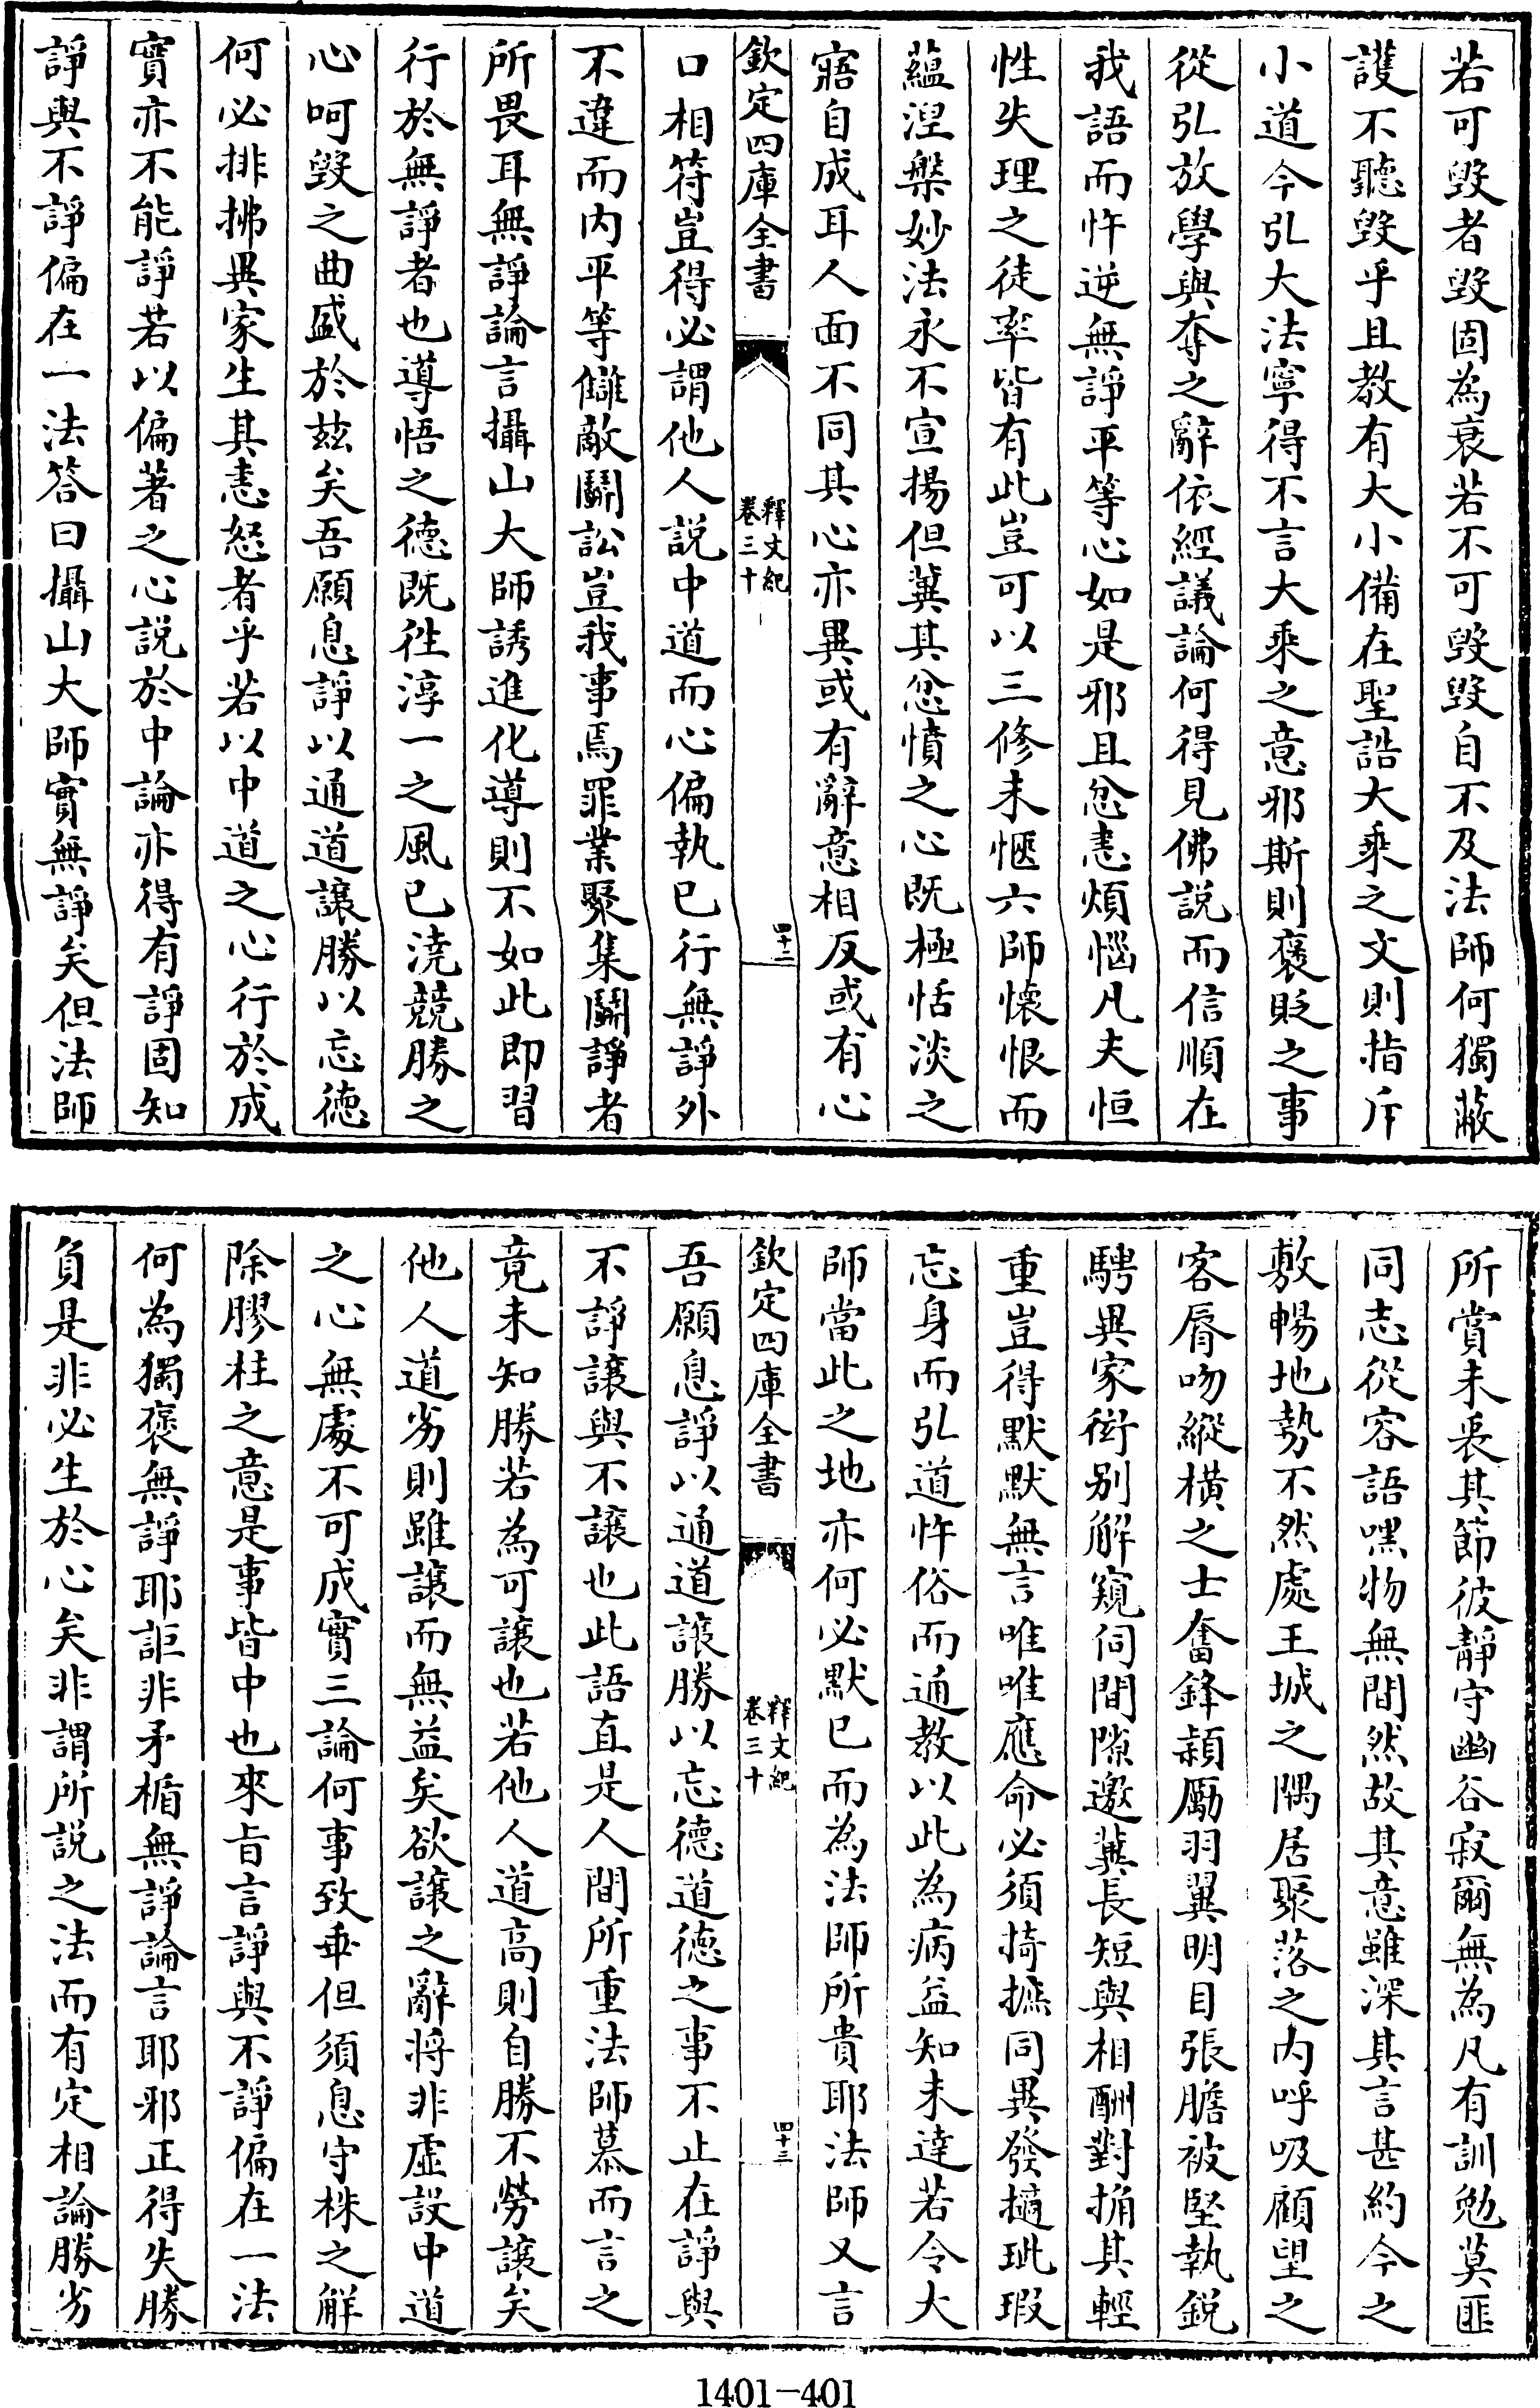 若可毀者毀固為衰若不可毀毀自不及法師何獨蔽
護不聽毀乎且教有大小備在聖誥大乘之文則指斥
小道今引大法寧得不言大乘之意邪斯則褒貶之事
從弘放學與奪之辭依經議論何得見佛說而信順在
我語而忤逆無諍平等心如是邪且忿恚煩惱凡夫恒
性失理之徒率皆有此豈可以三修未愜六師懷恨而
蘊涅槃妙法永不宣揚但冀其忿憤之心既極恬淡之
寤自成耳人面不同其心亦異或有辭意相反或有心
欽定四庫全書
釋文紀
卷三十
四十二
口相符豈得必謂他人說中道而心偏執已行無諍外
不違而內平等讎敵鬭訟豈我事焉罪業聚集鬭諍者
所畏耳無諍論言攝山大師誘進化導則不如此即習
行於無諍者也導悟之德既往淳一之風已澆競勝之
心呵毀之曲盛於茲矣吾願息諍以通道讓勝以忘德
何必排拂異家生其恚怒者乎若以中道之心行於成
實亦不能諍若以偏著之心說於中論亦得有諍固知
諍與不諍偏在一法答曰攝山大師實無諍矣但法師
所賞未衷其節彼靜守幽谷寂爾無為凡有訓勉莫匪
同志從容語嘿物無間然故其意雖深其言甚約今之
敷暢地勢不然處王城之隅居聚落之內呼吸顧望之
客脣吻縱橫之士奮鋒穎勵羽翼明目張膽被堅執銳
騁異家衒別解窺伺間隙邀冀長短與相酬對捔其輕
重豈得默默無言唯唯應命必須掎摭同異發擿玼瑕
忘身而弘道忤俗而通教以此為病益知未達若令大
師當此之地亦何必默已而為法師所貴耶法師又言
欽定四庫全書
釋文紀
卷三十
四十三
吾願息諍以通道讓勝以忘德道德之事不止在諍與
不諍讓與不讓也此語直是人間所重法師慕而言之
竟未知勝若為可讓也若他人道高則自勝不勞讓矣
他人道劣則雖讓而無益矣欲讓之辭將非虛設中道
之心無處不可成實三論何事致乖但須息守株之解
除膠柱之意是事皆中也來旨言諍與不諍偏在一法
何為獨褒無諍耶詎非矛楯無諍論言耶邪正得失勝
負是非必生於心矣非謂所說之法而有定相論勝劣
1401-401